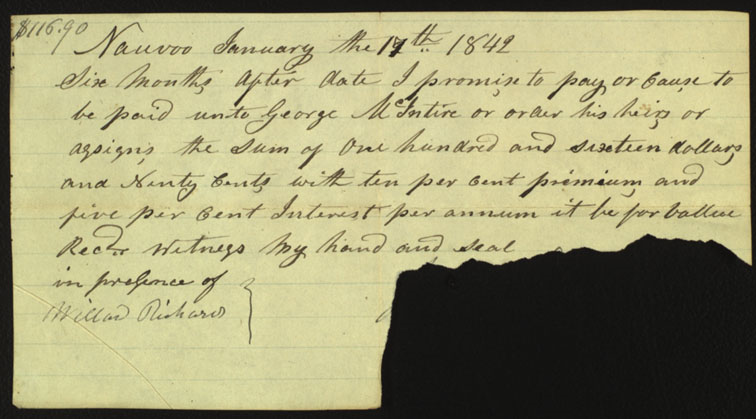 $116.90
Nauvoo January the 17th 1842
Six Months after date I promise to pay or Cause to
be paid unto George McIntire or order his heirs or
assigns the Sum of One hundred and sixteen dollars
and Ninty Cents with ten per cent premium and
five per Cent Interest per annum it be for vallue
Recd Witness my hand and seal
in presence of
Willard Richards